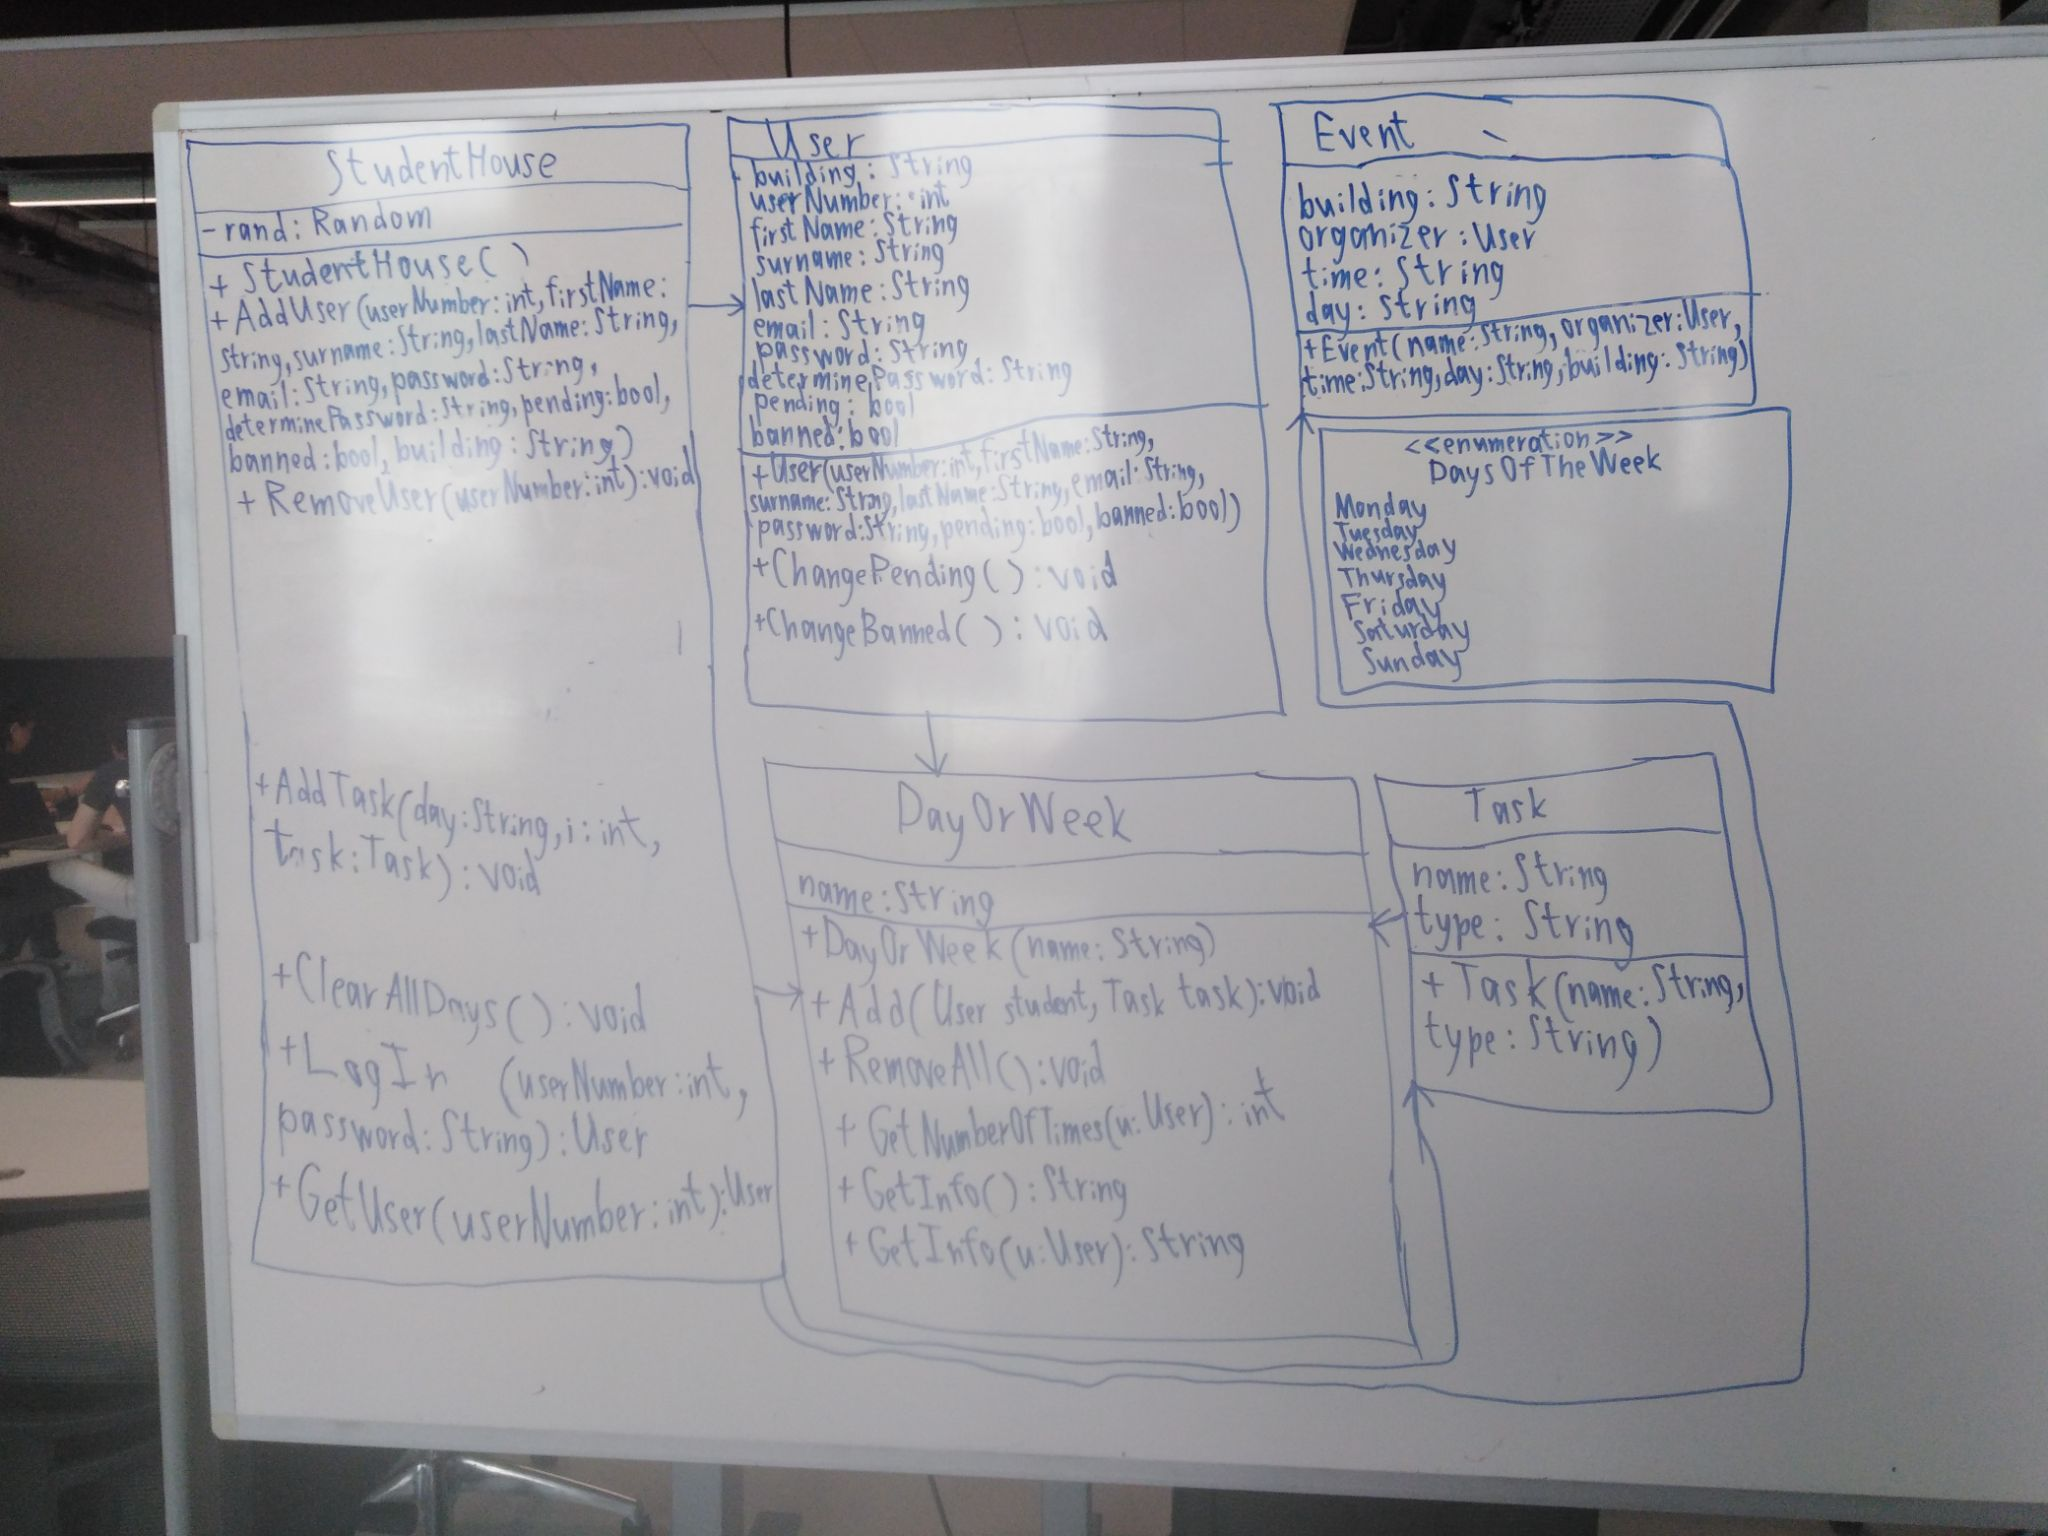 StudentHouse
- rand: Random
+ StudentHouse()
+ AddUser(userNumber: int, firstName:
String, surname: String, lastName: String,
email: String, password: String,
determinePassword: String, pending: bool,
banned: bool, building: String)
+ RemoveUser(userNumber: int): void
+ AddTask(day: String, i: int,
task: Task): void
+ ClearAllDays(): void
+ LogIn (userNumber: int,
password: String): User
+ GetUser(userNumber: int): User
User
building: String
userNumber: int
firstName: String
surname: String
lastName: String
email: String
password: String
determinePassword: String
pending: bool
banned: bool
+ User(userNumber: int, firstName: String,
surname: String, lastName: String, email: String,
password: String, pending: bool, banned: bool)
+ ChangePending(): void
+ ChangeBanned(): void
Event
building: String
organizer: User
time: String
day: String
+ Event(name: String, organizer: User,
time: String, day: String, building: String)
<<enumeration>>
DaysOfTheWeek
Monday
Tuesday
Wednesday
Thursday
Friday
Saturday
Sunday
DayOrWeek
name: String
+ DayOrWeek(name: String)
+ Add(User student, Task task): void
+ RemoveAll(): void
+ GetNumberOfTimes(u: User): int
+ GetInfo(): String
+ GetInfo(u: User): String
Task
name: String
type: String
+ Task(name: String,
type: String)